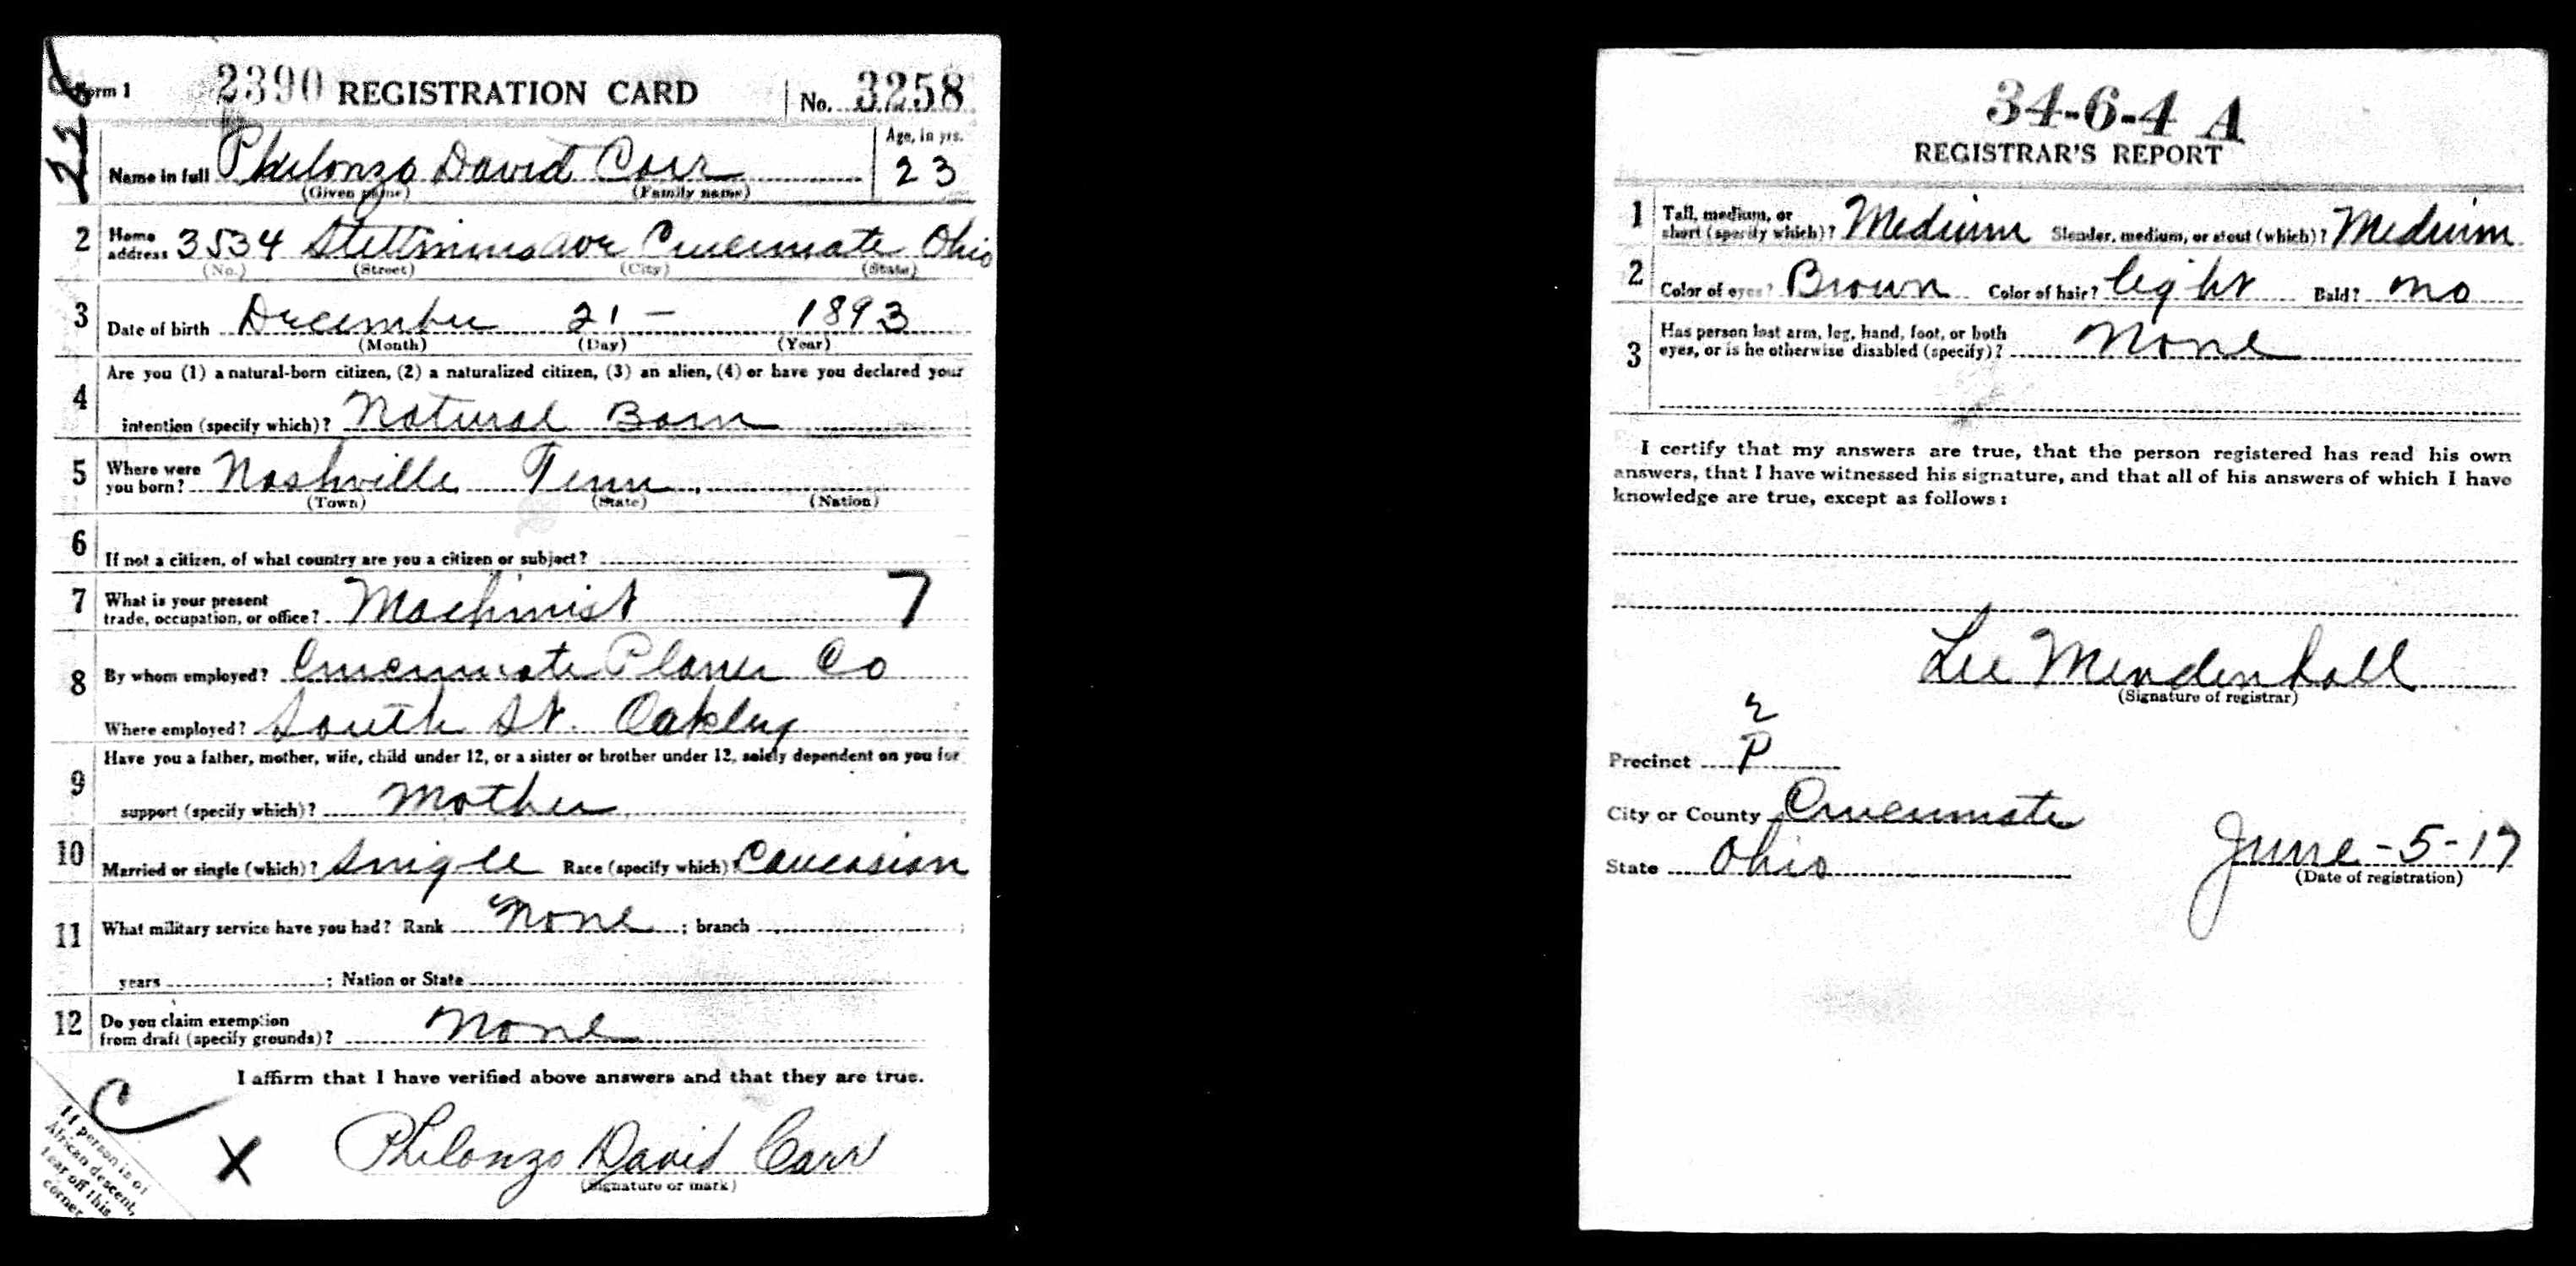 Form 1 2390 REGISTRATION CARD No. 3258
Name in full Philonzo David Carr Age, in yrs. 23
(Given name) (Family name)
2 Home address 3534 Stettinius Ave Cincinnati Ohio
(No.) (Street) (City) (State)
3 Date of birth December 21 - 1893
(Month) (Day) (Year)
4 Are you (1) a natural-born citizen, (2) a naturalized citizen, (3) an alien, (4) or have you declared your
intention (specify which)? Natural Born
5 Where were you born? Nashville Tenn.
(Town) (State) (Nation)
6 If not a citizen, of what country are you a citizen or subject?
7 What is your present trade, occupation, or office? Machinist 7
8 By whom employed? Cincinnati Planer Co
Where employed? South St. Oakley
9 Have you a father, mother, wife, child under 12, or a sister or brother under 12, solely dependent on you for
support (specify which)? Mother
10 Married or single (which)? Single Race (specify which)? Caucasian
11 What military service have you had? Rank None ; branch ;
years ; Nation or State
12 Do you claim exemption from draft (specify grounds)? None
I affirm that I have verified above answers and that they are true.
C
If person is of
African descent,
tear off this
corner
X Philonzo David Carr
(Signature or mark)
34-6-4 A
REGISTRAR'S REPORT
1 Tall, medium, or short (specify which)? Medium Slender, medium, or stout (which)? Medium
2 Color of eyes? Brown Color of hair? light Bald? no
3 Has person lost arm, leg, hand, foot, or both
eyes, or is he otherwise disabled (specify)? None
I certify that my answers are true, that the person registered has read his own
answers, that I have witnessed his signature, and that all of his answers of which I have
knowledge are true, except as follows:
Lee Mendenhall
(Signature of registrar)
Precinct P
City or County Cincinnati
State Ohio June-5-17
(Date of registration)